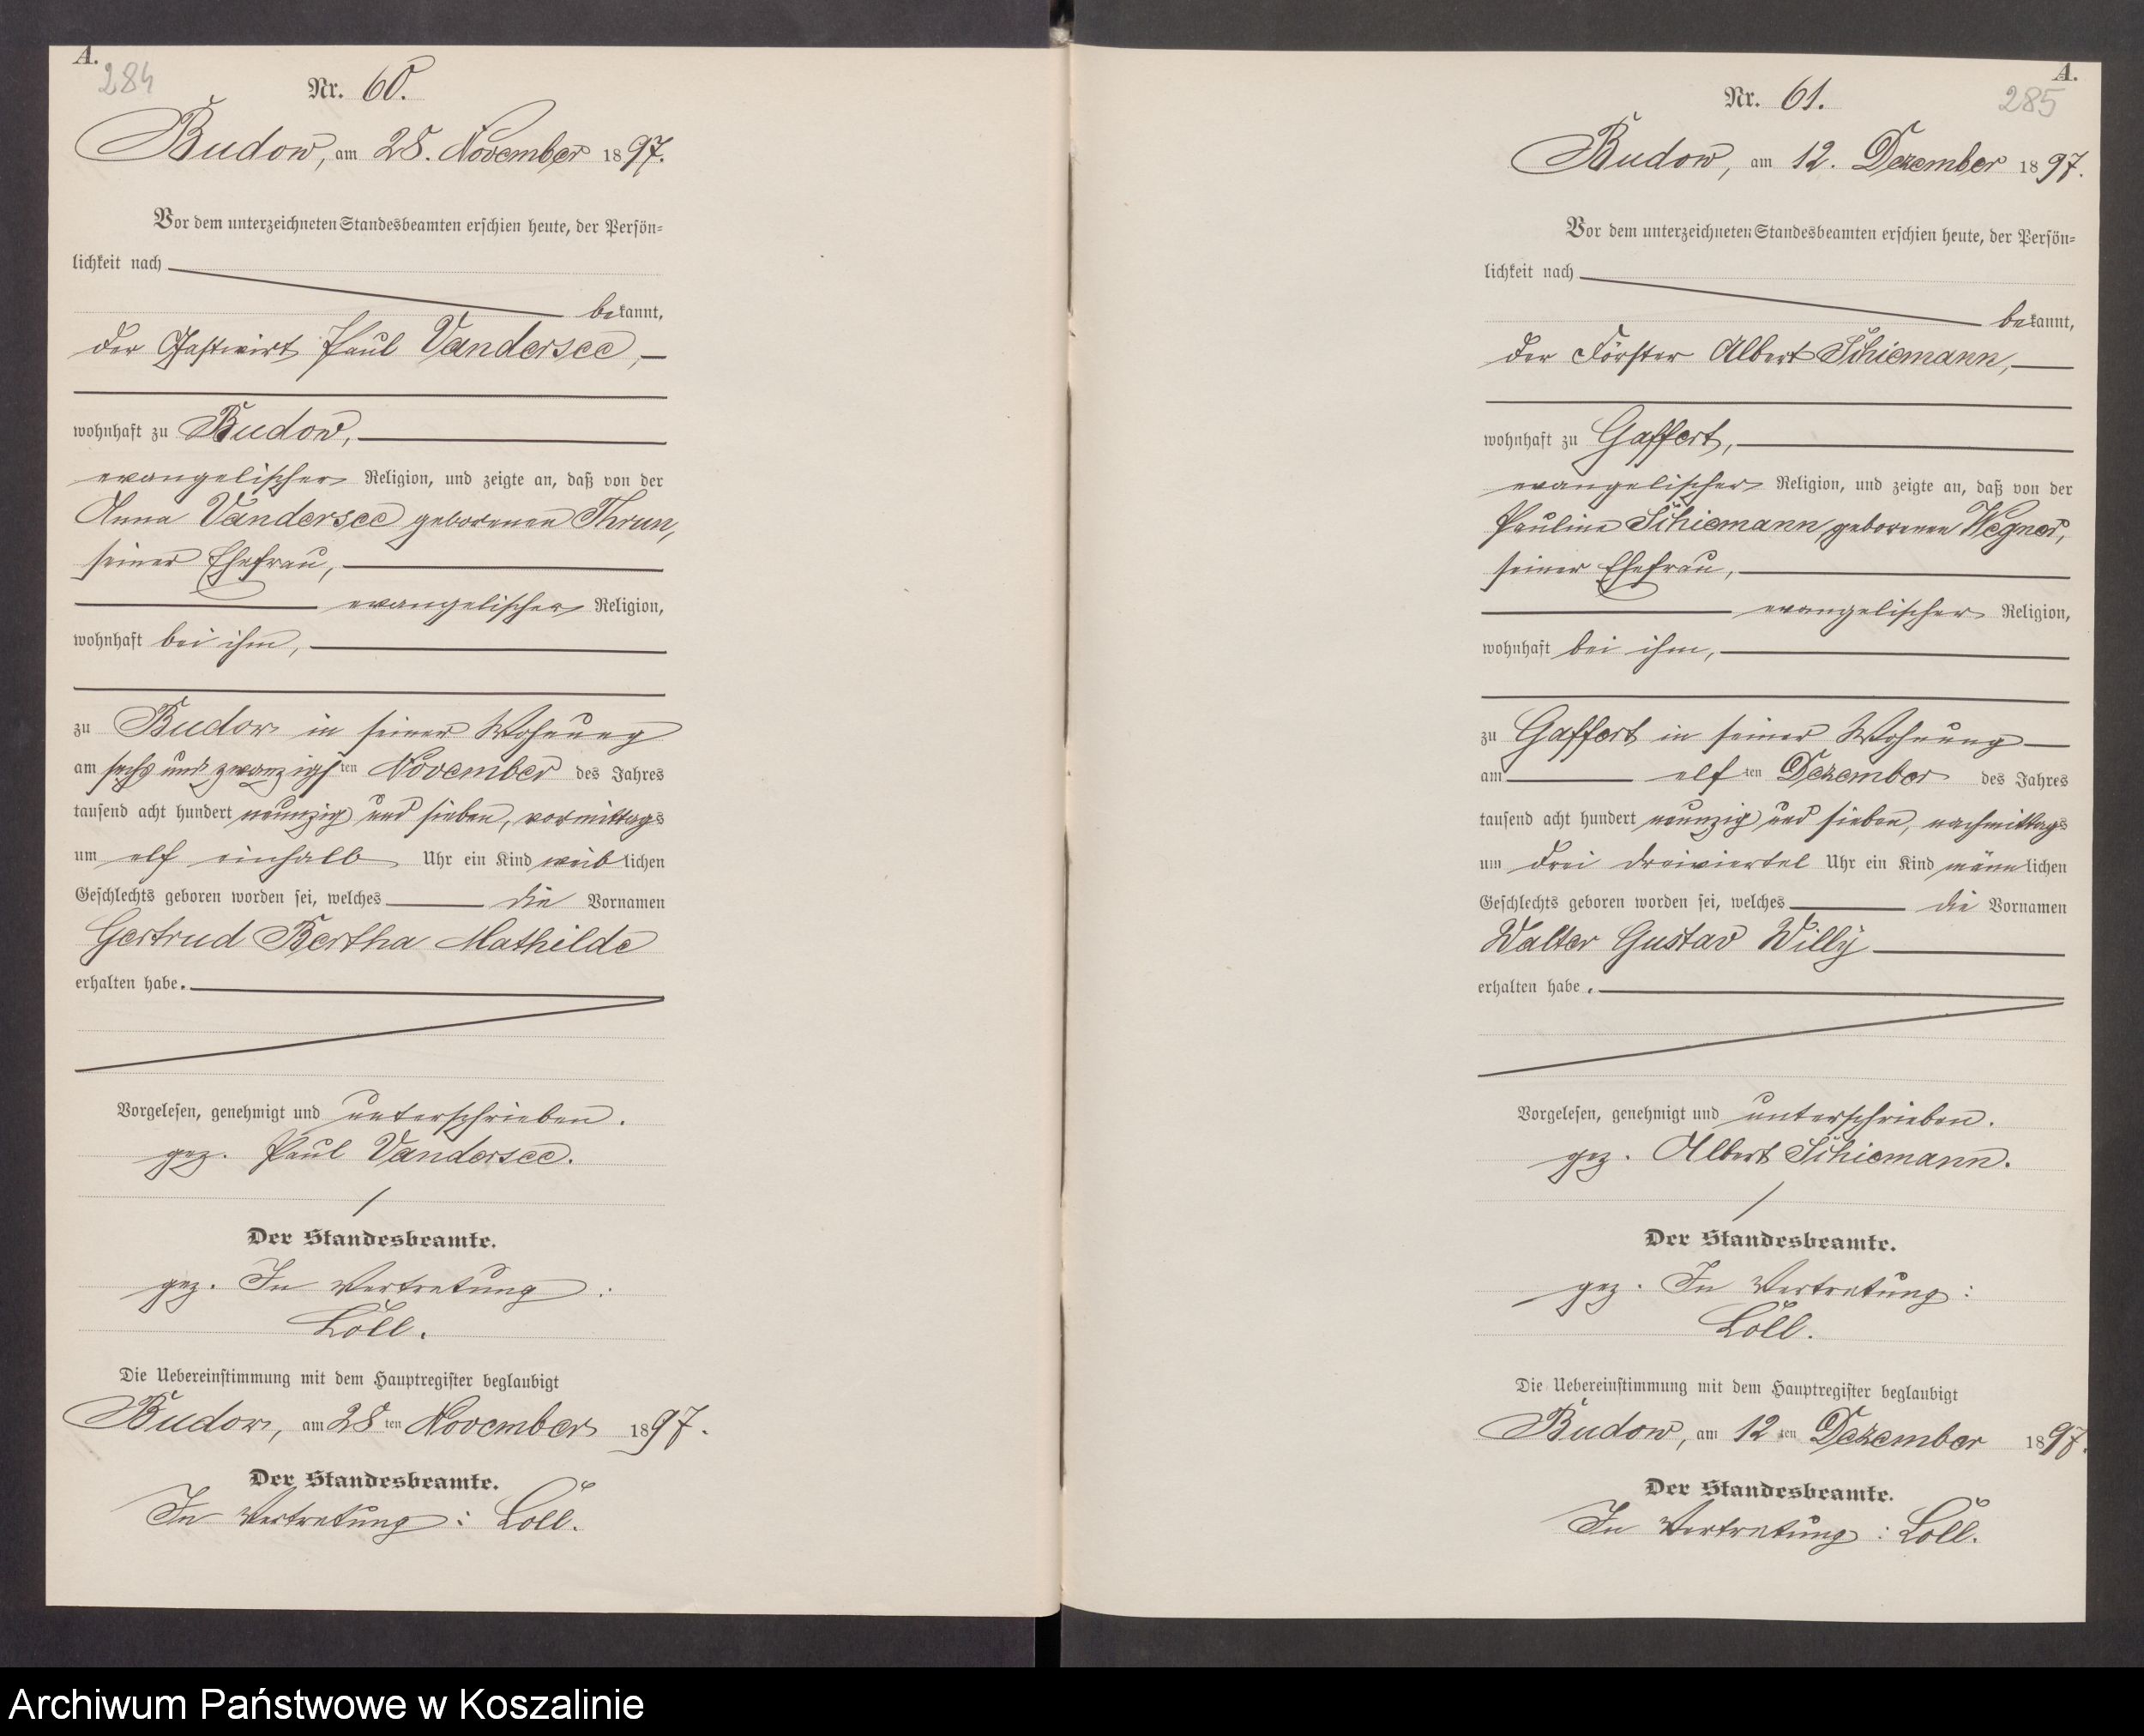 A.
284
Nr. 60.
Budow, am 28. November 1897.
Vor dem unterzeichneten Standesbeamten erschien heute, der Persön=
lichkeit nach
bekannt,
der Gastwirt Paul Vandersee,
wohnhaft zu Budow,
evangelischer Religion, und zeigte an, daß von der
Anna Vandersee geborenen Thrun,
seiner Ehefrau,
evangelischer Religion,
wohnhaft bei ihm,
zu Budow in seiner Wohnung
am sechs und zwanzigsten November des Jahres
tausend acht hundert neunzig und sieben, vormittags
um elf einhalb Uhr ein Kind weiblichen
Geschlechts geboren worden sei, welches die Vornamen
Gertrud Bertha Mathilde
erhalten habe.
Vorgelesen, genehmigt und unterschrieben.
gez. Paul Vandersee.
Der Standesbeamte.
gez. In Vertretung:
Löll.
Die Uebereinstimmung mit dem Hauptregister beglaubigt
Budow, am 28ten November 1897.
Der Standesbeamte.
In Vertretung: Löll.
A.
285
Nr. 61.
Budow, am 12. Dezember 1897.
Vor dem unterzeichneten Standesbeamten erschien heute, der Persön=
lichkeit nach
bekannt,
der Förster Albert Schiemann,
wohnhaft zu Gaffert,
evangelischer Religion, und zeigte an, daß von der
Pauline Schiemann geborenen Wegner,
seiner Ehefrau,
evangelischer Religion,
wohnhaft bei ihm,
zu Gaffert in seiner Wohnung
am elften Dezember des Jahres
tausend acht hundert neunzig und sieben, nachmittags
um drei dreiviertel Uhr ein Kind männlichen
Geschlechts geboren worden sei, welches die Vornamen
Walter Gustav Willy
erhalten habe.
Vorgelesen, genehmigt und unterschrieben.
gez. Albert Schiemann.
Der Standesbeamte.
gez. In Vertretung:
Löll.
Die Uebereinstimmung mit dem Hauptregister beglaubigt
Budow, am 12ten Dezember 1897.
Der Standesbeamte.
In Vertretung: Löll.
Archiwum Państwowe w Koszalinie